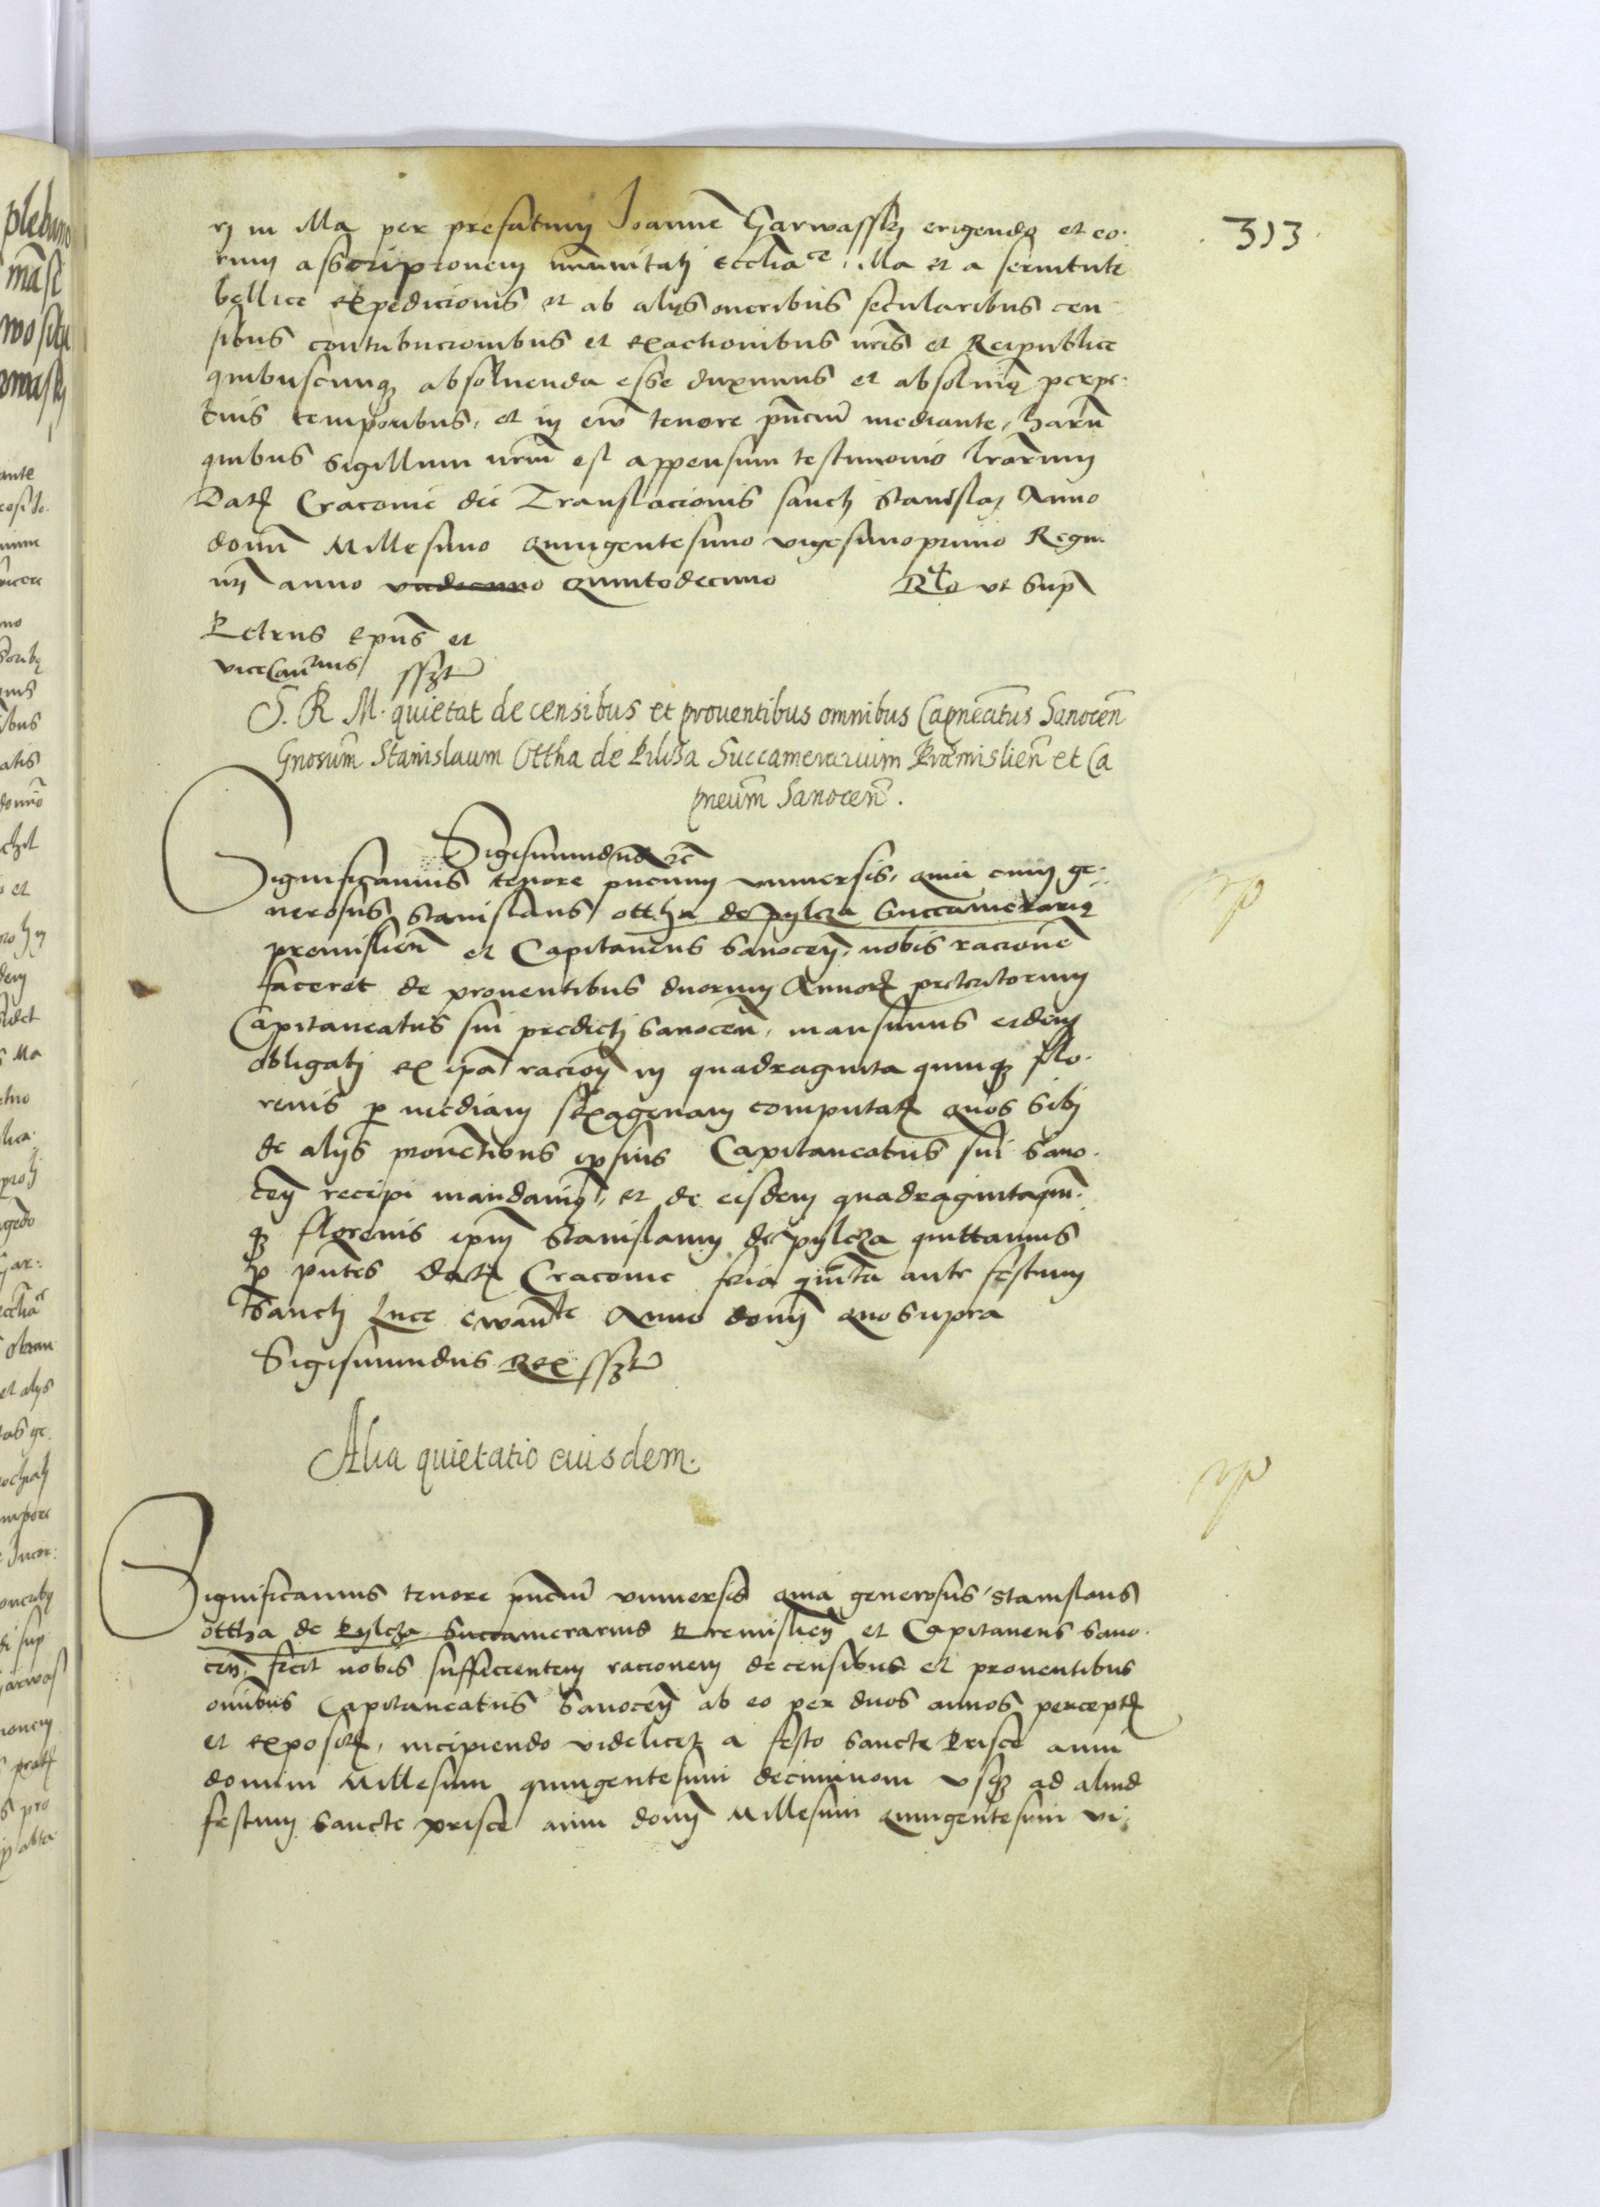 313
rj in illa per prefatum Joannē Garwasskj erigendo et eo.
rum asscripcionem immunitatj eccliāce, illa et a seruitute
bellice expedicionis et ab alijs oneribus secularibus cen
sibus contribucionibus et exactionibus nr̄is et Reipublice
quibuscunqȝ absoluenda esse duximus et absoluimꝰ perpe.
tuis temporibus, et in eū tenore pn̄ciū mediante, harū
quibus sigillum nr̄m est appensum testimonio lr̄arum
Datꝝ Cracouie die Translacionis sanctj Stanislaj Anno
domī Millesimo Quingentesimo vigesimoprimo Regnī
nr̄j anno vndecimo Quintodecimo Rlo vt supͣ
Petrus Epūs et
viceCanrius sszt
S. R M. quietat de censibus et prouentibus omnibus Capneātus Sanoceñ
Gnosum̄ Stanislaum Ottha de Pilcza Succamerarium Præmislieñ et Ca
pneum̄ Sanoceñ.
Sigismundus ꝛc̄
Significamus tenore pn̄cium vniuersis, quia cum ge.
nerosus Stanislaus ottha de pylcza Succamerariꝰ
premislień et Capitaneus Sanoceñ, nobis racionē
faceret de prouentibus duorum Annoꝝ preteritorum
Capitaneatus sui predictj Sanoceñ, mansimus eidem
obligatj ex ipā racioñ in quadraginta quinqȝ flo.
renis ꝑ mediam sexagenam computatꝝ quos sibj
de alijs prouētibus ipsius Capitaneatus sui Sano.
ceñ recipi mandauimꝰ, et de eisdem quadragintaquī.
qȝ florenis ipm̄ Stanislaum de pylcza quittamus
ꝑ pn̄tes Datꝝ Cracouie feria quīta ante festum
Sanctj Luce ewānte Anno domj quo supra
Sigismundus Rex sszt
Alia quietatio eiusdem.
Significamus tenore pn̄ciū vniuersis quia generosus Stanislaus
ottha de Pylcza Succamerarius Premislieñ et Capitaneus Sano.
ceñ, fecit nobis sufficientem racionem de censibus et prouentibus
omībus Capitaneatus Sanoceñ ab eo per duos annos perceptꝝ
et expositꝝ, incipiendo videlicet a festo Sancte Prisce anni
domini Millesimi quingentesimi decimi noni vsqȝ ad aliud
festum Sancte prisce anni domj Millesimi quingentesimi vi